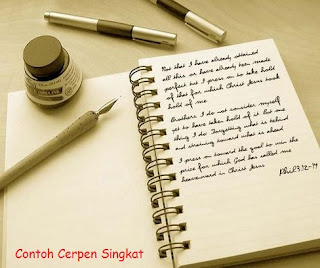 Not that I have already attained
all this or have already been made
perfect but I press on to take hold
of that for which Christ Jesus took
hold of me
Brothers I do not consider myself
yet to have taken hold of it But one
thing I do Forgetting what is behind
and straining toward what is ahead
I press on toward the goal to win the
prize for which God has called me
heavenward in Christ Jesus
Phil 3:12-14
Contoh Cerpen Singkat